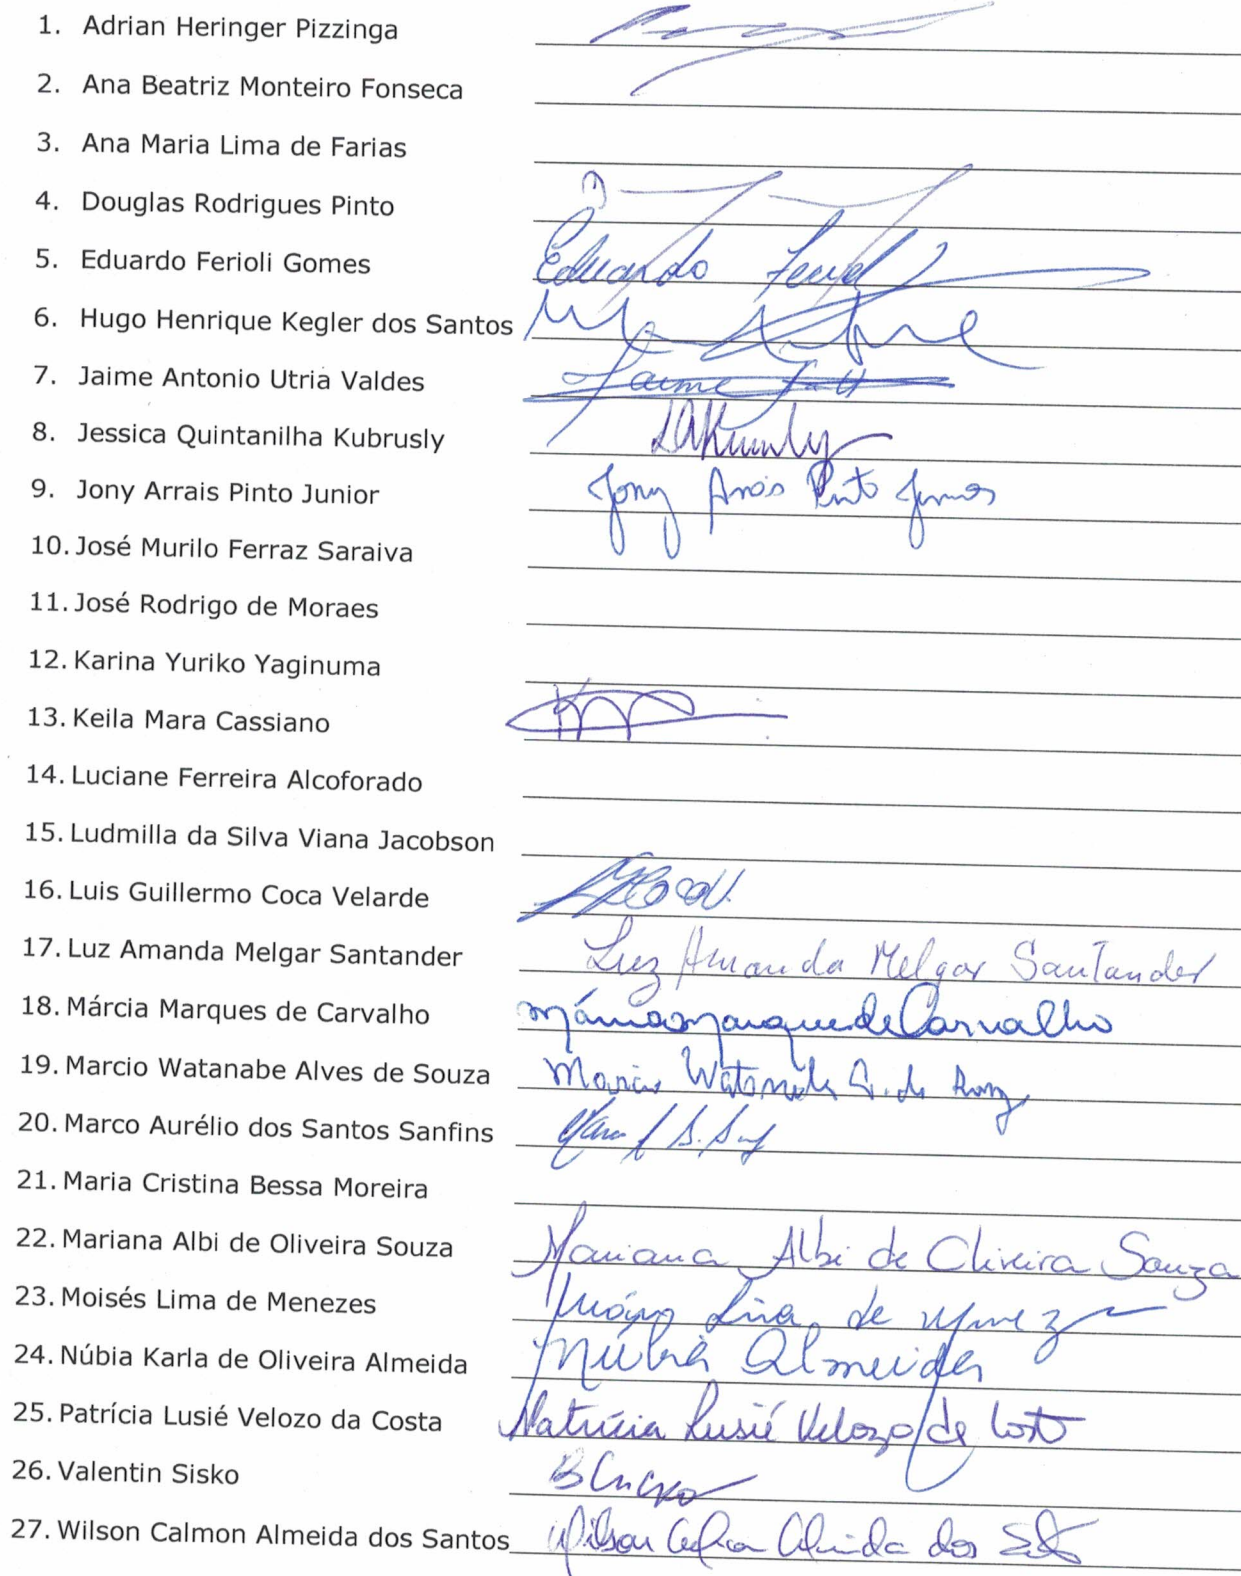 1. Adrian Heringer Pizzinga
2. Ana Beatriz Monteiro Fonseca
3. Ana Maria Lima de Farias
4. Douglas Rodrigues Pinto
5. Eduardo Ferioli Gomes Eduardo
6. Hugo Henrique Kegler dos Santos
7. Jaime Antonio Utria Valdes Jaime
8. Jessica Quintanilha Kubrusly
9. Jony Arrais Pinto Junior Jony Arrais Pinto Junior
10. José Murilo Ferraz Saraiva
11. José Rodrigo de Moraes
12. Karina Yuriko Yaginuma
13. Keila Mara Cassiano
14. Luciane Ferreira Alcoforado
15. Ludmilla da Silva Viana Jacobson
16. Luis Guillermo Coca Velarde
17. Luz Amanda Melgar Santander Luz Amanda Melgar Santander
18. Márcia Marques de Carvalho Márcia Marques de Carvalho
19. Marcio Watanabe Alves de Souza Marcio Watanabe
20. Marco Aurélio dos Santos Sanfins
21. Maria Cristina Bessa Moreira
22. Mariana Albi de Oliveira Souza Mariana Albi de Oliveira Souza
23. Moisés Lima de Menezes Moisés Lima de Menezes
24. Núbia Karla de Oliveira Almeida Núbia Almeida
25. Patrícia Lusié Velozo da Costa Patrícia Lusié Velozo da Costa
26. Valentin Sisko
27. Wilson Calmon Almeida dos Santos Wilson Calmon Almeida dos Santos